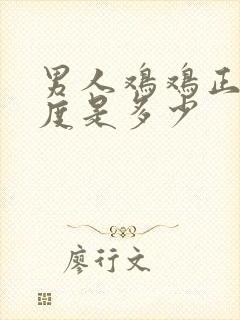 男人鸡鸡正
度是多少
廖行文